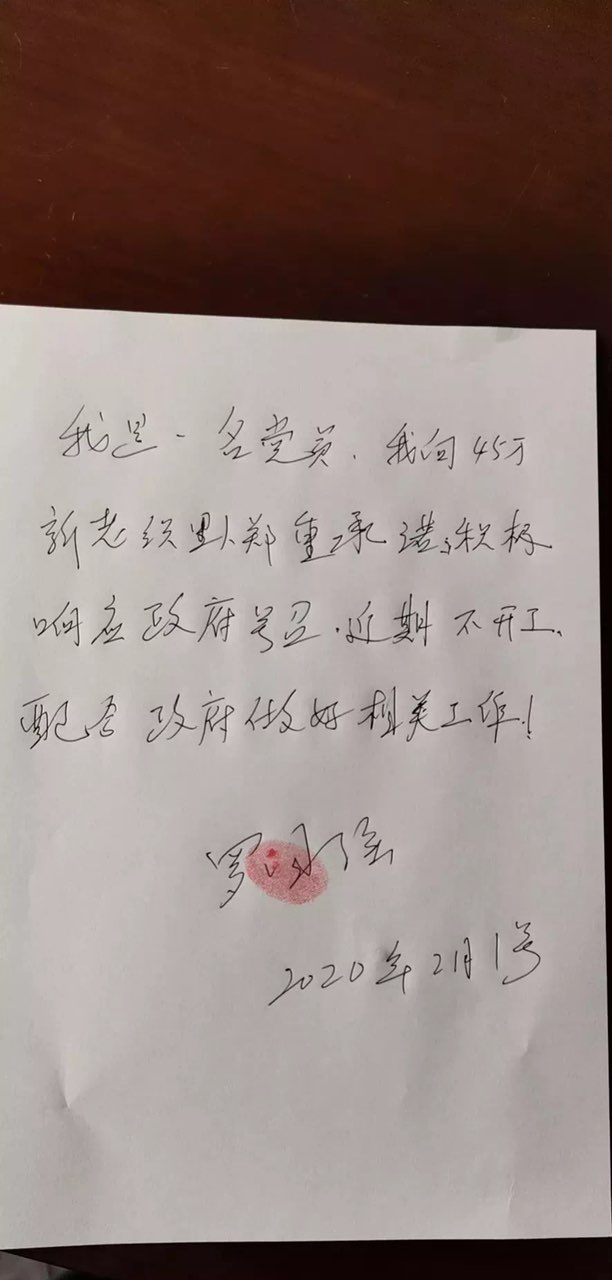 我是一名党员.我向45万
新老织里人郑重承诺,积极
响应政府号召.近期不开工.
配合政府做好相关工作!
罗永强
2020年2月1号